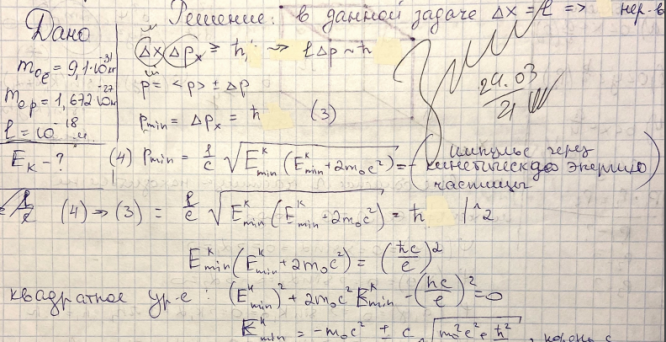 Дано
m₀e = 9,1·10⁻³¹ кг
m₀p = 1,672·10⁻²⁷
l = 10⁻¹⁸ м.
Eк - ?
Решение: в данной задаче Δx = l => нер-в
Δx Δpₓ ≥ ħ, l Δp ~ ħ
p = <p> ± Δp
Pmin = Δpₓ = ħ (3)
(4) Pmin = 1/c √(Eᵏmin (Eᵏmin + 2m₀c²)) = (импульс через
кинетическую энергию
частицы)
24.03
21
(4) → (3) = l/c √(Eᵏmin (Eᵏmin + 2m₀c²)) = ħ |^2
Eᵏmin (Eᵏmin + 2m₀c²) = (ħc/l)²
квадратное ур-е: (Eᵏmin)² + 2m₀c² Eᵏmin - (ħc/l)² = 0
Eᵏmin = -m₀c² ± c √(m₀²c² + ħ²